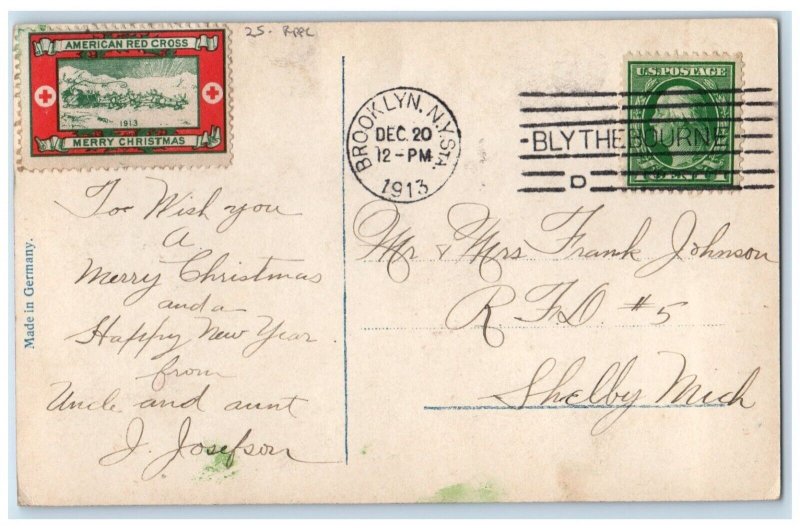 AMERICAN RED CROSS
1913
MERRY CHRISTMAS
25.
BROOKLYN, N.Y. STA.
DEC. 20
12-PM
1913
BLYTHEBOURNE
D
U.S. POSTAGE
Made in Germany.
To Wish you
A
Merry Christmas
and a
Happy New Year
from
Uncle and aunt
J. Josefson
Mr & Mrs Frank Johnson
R F D. #5
Shelby Mich